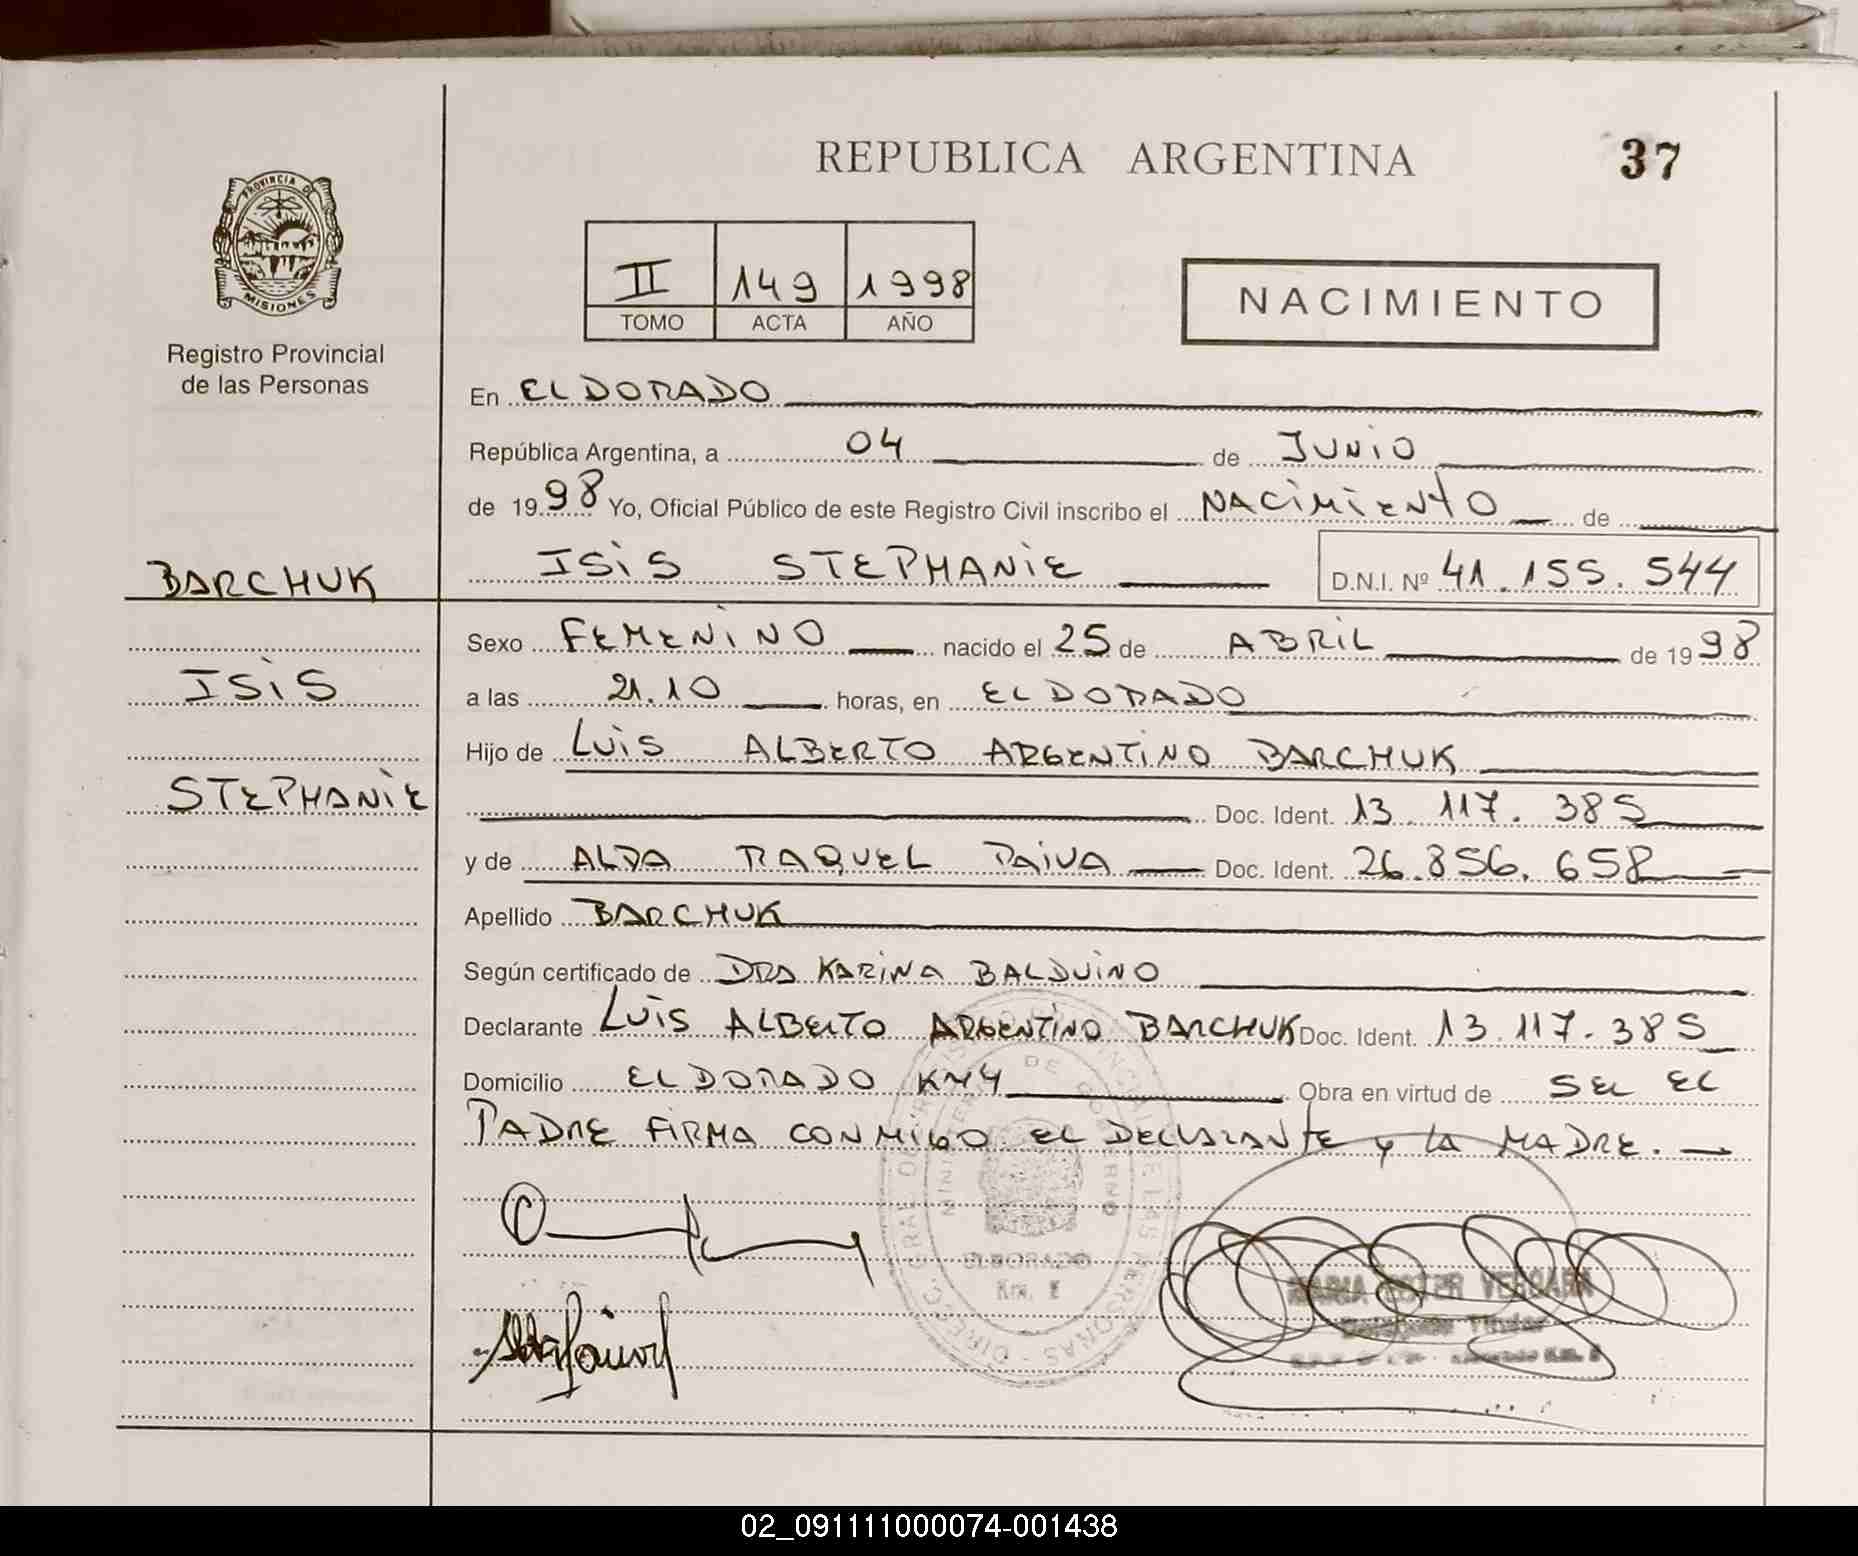 REPUBLICA ARGENTINA
37
PROVINCIA DE
MISIONES
Registro Provincial
de las Personas
II 149 1998
TOMO ACTA AÑO
NACIMIENTO
En ELDORADO
República Argentina, a 04 de JUNIO
de 1998 Yo, Oficial Público de este Registro Civil inscribo el NACIMIENTO de
ISIS STEPHANIE D.N.I. Nº 41.155.544
BARCHUK
ISIS
STEPHANIE
Sexo FEMENINO nacido el 25 de ABRIL de 1998
a las 21.10 horas, en ELDORADO
Hijo de LUIS ALBERTO ARGENTINO BARCHUK
Doc. Ident. 13.117.385
y de ALDA RAQUEL PAIVA Doc. Ident. 26.856.658
Apellido BARCHUK
Según certificado de DRA KARINA BALDUINO
Declarante LUIS ALBERTO ARGENTINO BARCHUK Doc. Ident. 13.117.385
Domicilio ELDORADO KM4 Obra en virtud de SER EL
PADRE FIRMA CONMIGO EL DECLARANTE y LA MADRE.
MINISTERIO DE GOBIERNO
ELDORADO
MARIA ESTER VERGARA
02_091111000074-001438